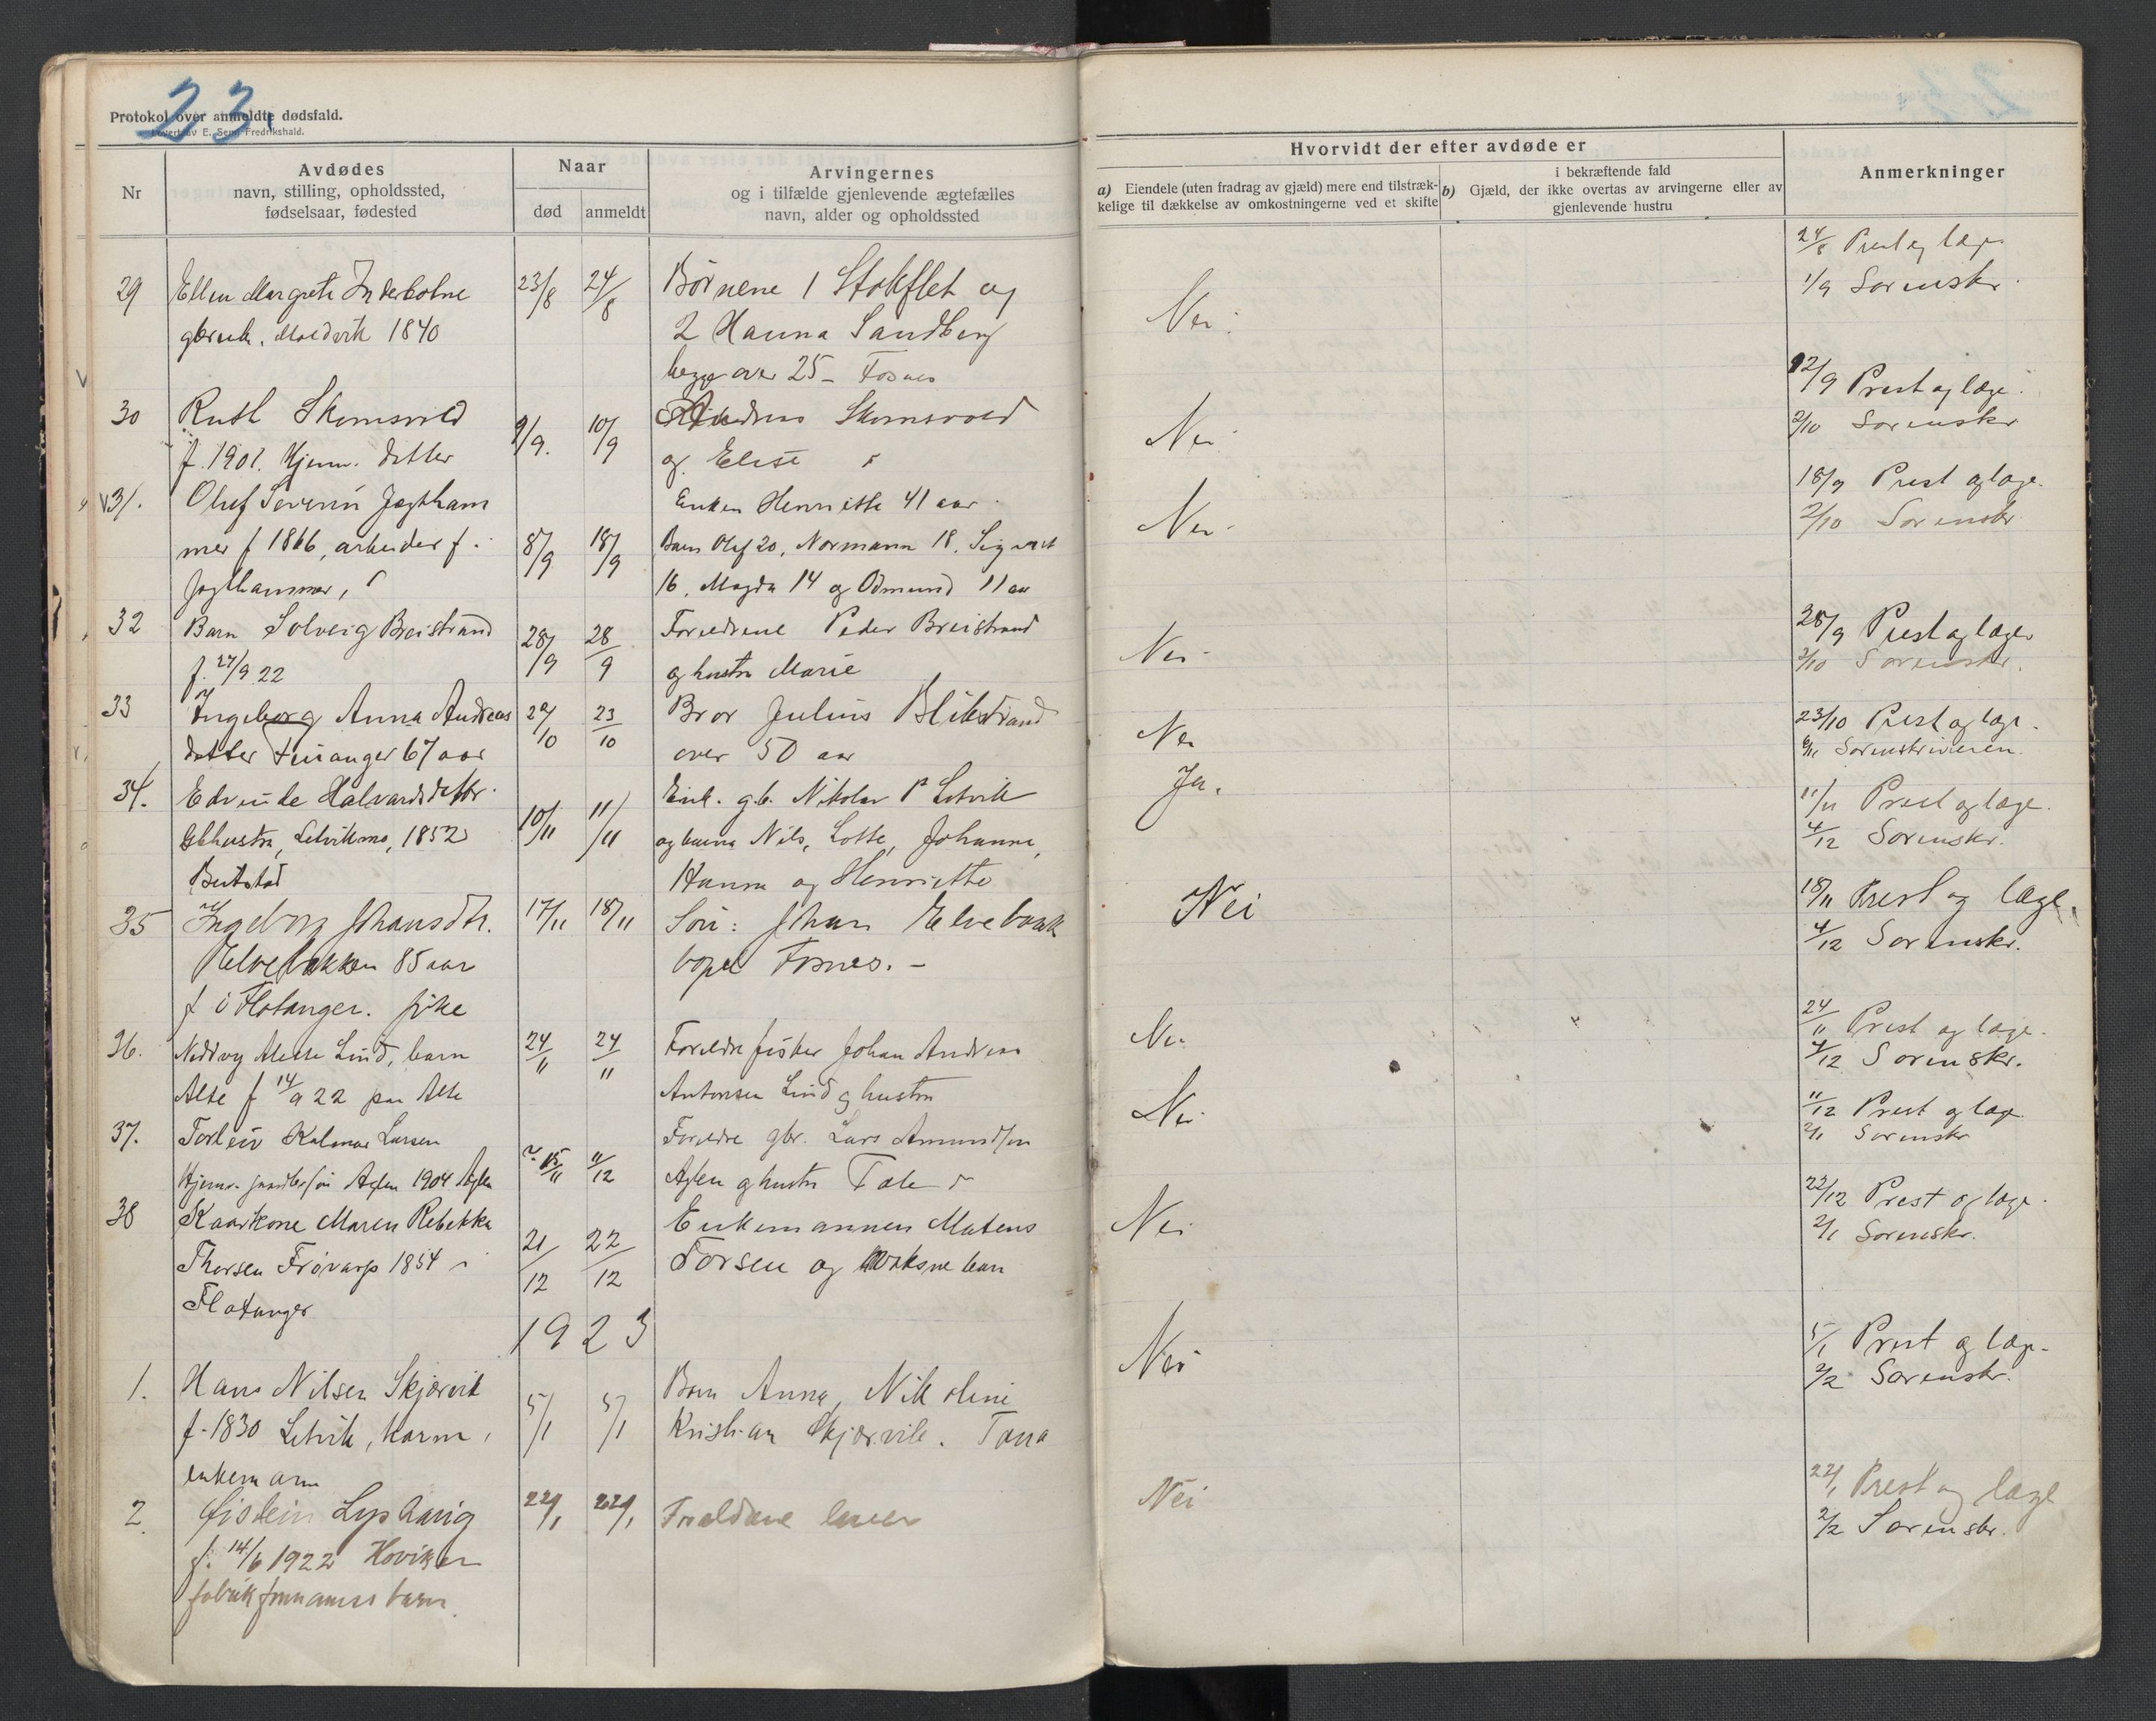 23.
Protokol over anmeldte dødsfald.
Levert av E. Sem, Fredrikshald.
Nr
Avdødes
navn, stilling, opholdssted,
fødselsaar, fødested
Naar
død
anmeldt
Arvingernes
og i tilfælde gjenlevende ægtefælles
navn, alder og opholdssted
Hvorvidt der efter avdøde er
a) Eiendele (uten fradrag av gjæld) mere end tilstræk-
kelige til dækkelse av omkostningerne ved et skifte
i bekræftende fald
b) Gjæld, der ikke overtas av arvingerne eller av
gjenlevende hustru
Anmerkninger
29 Ellen Margrete 23/8 24/8 Børnene 1 Stokflet og Nei. 24/8 Prest og læge
1840 2 Hanna Sandberg 1/9 Sorenskr.
begge over 25 - Fosnes
30 Ruth Skomsvold 9/9. 10/9 Andreas Skomsvold Nei 12/9 Prest og læge.
f. 1901. Hjemv. datter og Elise 2/10 Sorenskr
31. Oluf Severin Jægtham Enken Henriette 41 aar Nei 18/9 Prest og læge.
mer f 1866, arbeider f. i 8/9 18/9 Barn Olaf 20, Normann 18, Sigvart 2/10 Sorenskr
Jægthammer, 16, Magda 14 og Odmund 11 aar
32 Barn Solveig Breistrand 28/9 28/9 Forældrene Peder Breistrand Nei 28/9 Prest og læge
f. 27/9 22 og hustru Marie 2/10 Sorenskr.
33 Ingeborg Anna Andreas 23/10 Bror Julius Blikstrand Nei 23/10 Prest og læge.
datter 67 aar over 50 aar 6/11 Sorenskriveren.
34. Halvardsdatter 10/11 11/11 Enk. g.b. Nikolai P Letvik Ja. 11/11 Prest og læge.
Gbhustru, Letvikmo, 1852 og barna Nils, Lotte, Johanna, 4/12 Sorenskr.
Hanna og Henriette
35 Ingeborg Johansdtr. 17/11 18/11 Søn: Johan Elvebakk Nei 18/11 Prest og læge.
Helvebakken 85 aar bopæl Fosnes. - 4/12 Sorenskr.
f i Flatanger. pike
36. Lind, barn 24/11 24/11 Forældre fisker Johan Andreas Nei 24/11 Prest og læge.
f 14/9 22 paa Antonsen Lind og hustru 4/12 Sorenskr.
37. Torleiv Kalmar Larsen Forældre gbr. Lars Amundsen Nei 11/12 Prest og læge
Hjemv. Aglen 1904 Aglen 15/11 11/12 Aglen og hustru 2/1 Sorenskr
38 Kaarkone Maren Rebekka 21/12 22/12 Enkemannen Mateus Nei 22/12 Prest og læge.
Thorsen Frøvarp 1854 i Torsen og voksne barn 2/1 Sorenskr.
Flatanger
1923
1. Hans Nilsen Skjærvik 5/1 5/1 Barn Anna, Nikoline Nei 5/1 Prest og læge.
f. 1830 Letvik, Kristian Skjærvik. 2/2 Sorenskr.
enkemann
2. Øistein 22/1 22/1 Forældrene lever Nei 22/1 Prest og læge
f. 14/6 1922 2/2 Sorenskr.
barn.